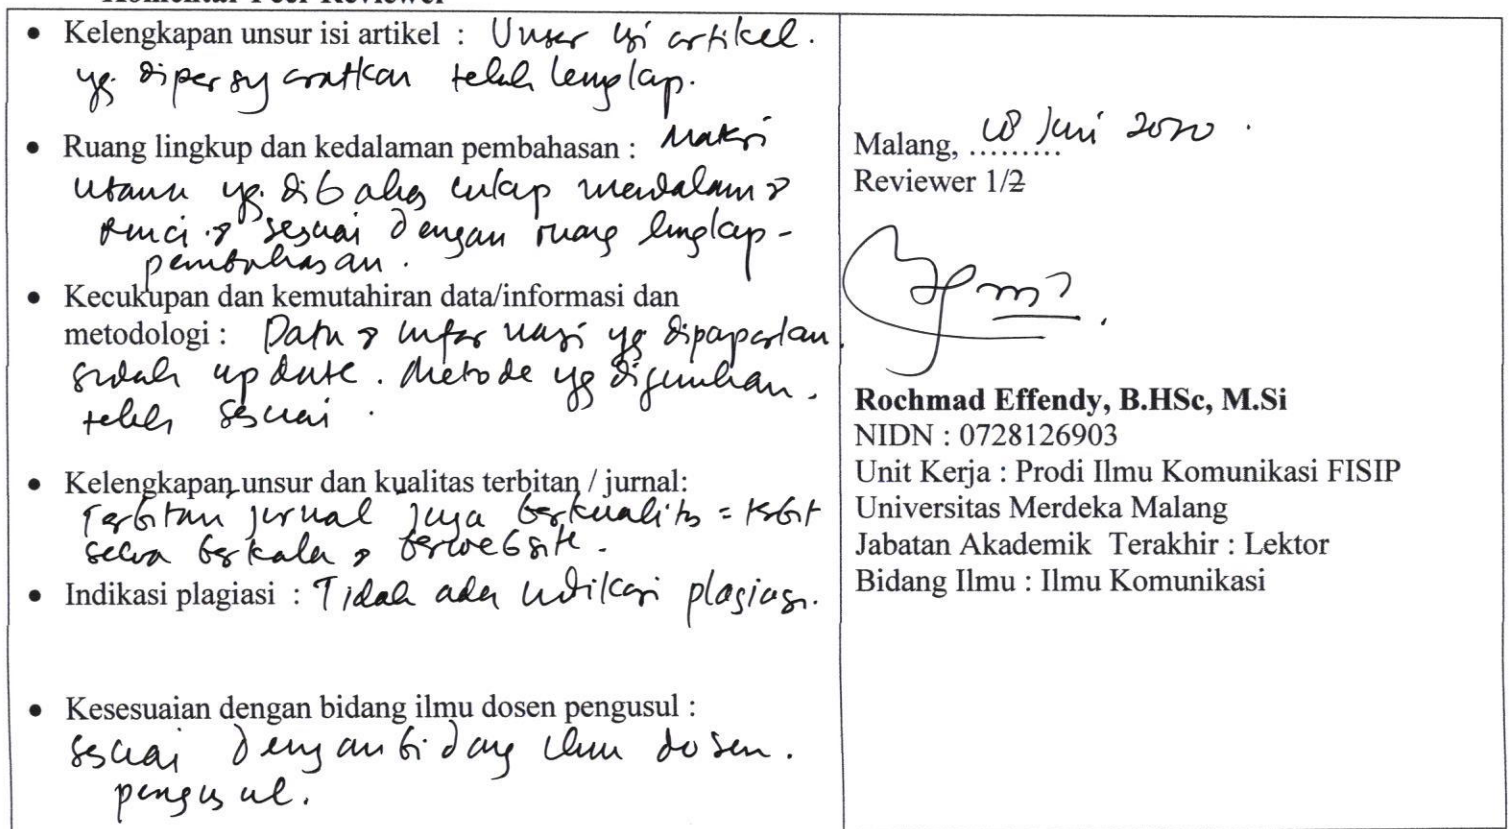 Komentar Peer Reviewer
• Kelengkapan unsur isi artikel : Unsur isi artikel.
yg dipersyaratkan telah lengkap.
• Ruang lingkup dan kedalaman pembahasan : Materi
utama yg dibahas cukup mendalam &
rinci & sesuai dengan ruang lingkup-
pembahasan.
• Kecukupan dan kemutahiran data/informasi dan
metodologi : Data & informasi yg dipaparkan
sudah update. Metode yg digunakan.
telah sesuai.
• Kelengkapan unsur dan kualitas terbitan / jurnal:
Terbitan jurnal juga berkualitas = terbit
secara berkala & berwebsite.
• Indikasi plagiasi : Tidak ada indikasi plagiasi.
• Kesesuaian dengan bidang ilmu dosen pengusul :
sesuai dengan bidang ilmu dosen.
pengusul.
Malang, ......... Juni 2020.
Reviewer 1/2
Rochmad Effendy, B.HSc, M.Si
NIDN : 0728126903
Unit Kerja : Prodi Ilmu Komunikasi FISIP
Universitas Merdeka Malang
Jabatan Akademik Terakhir : Lektor
Bidang Ilmu : Ilmu Komunikasi